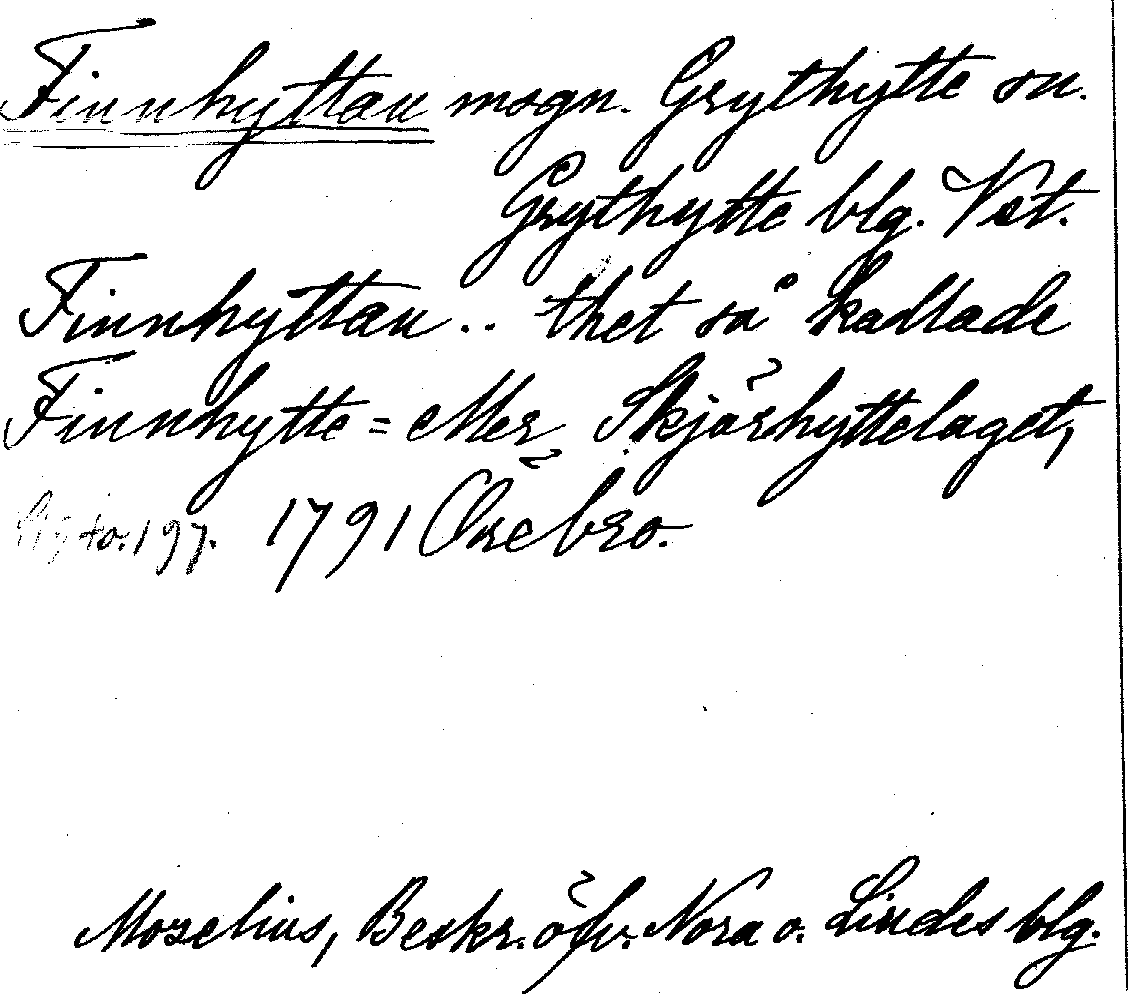 Finnhyttan msgn. Grythytte sn.
Grythytte blg. Vst.
Finnhyttan .. thet så kallade
Finnhytte = eller Skjörhyttelaget,
to. 197. 1791 Örebro.
Mozelius, Beskr. öfv. Nora o. Lindes blg.